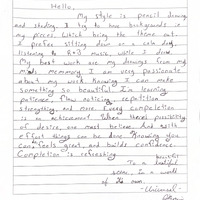 Hello,
My style is pencil drawing
and shading. I try to have backgrounds in
my pieces. Which bring the theme out.
I prefer sitting down on a calm day,
listening to R&B music, while I draw.
My best work are my drawings from my
mind's memory. I am very passionate
about my work knowing I can make
something so beautiful. I'm learning
patience, flow noticing, repetition
strengthing, and more. Every completion
is an achievement. When theres possibility
of desire, one must believe. And with
effort things can be done. Knowing you
can, feels great, and builds confidence.
Completion is refreshing
To a beautiful
in a world
of its own.